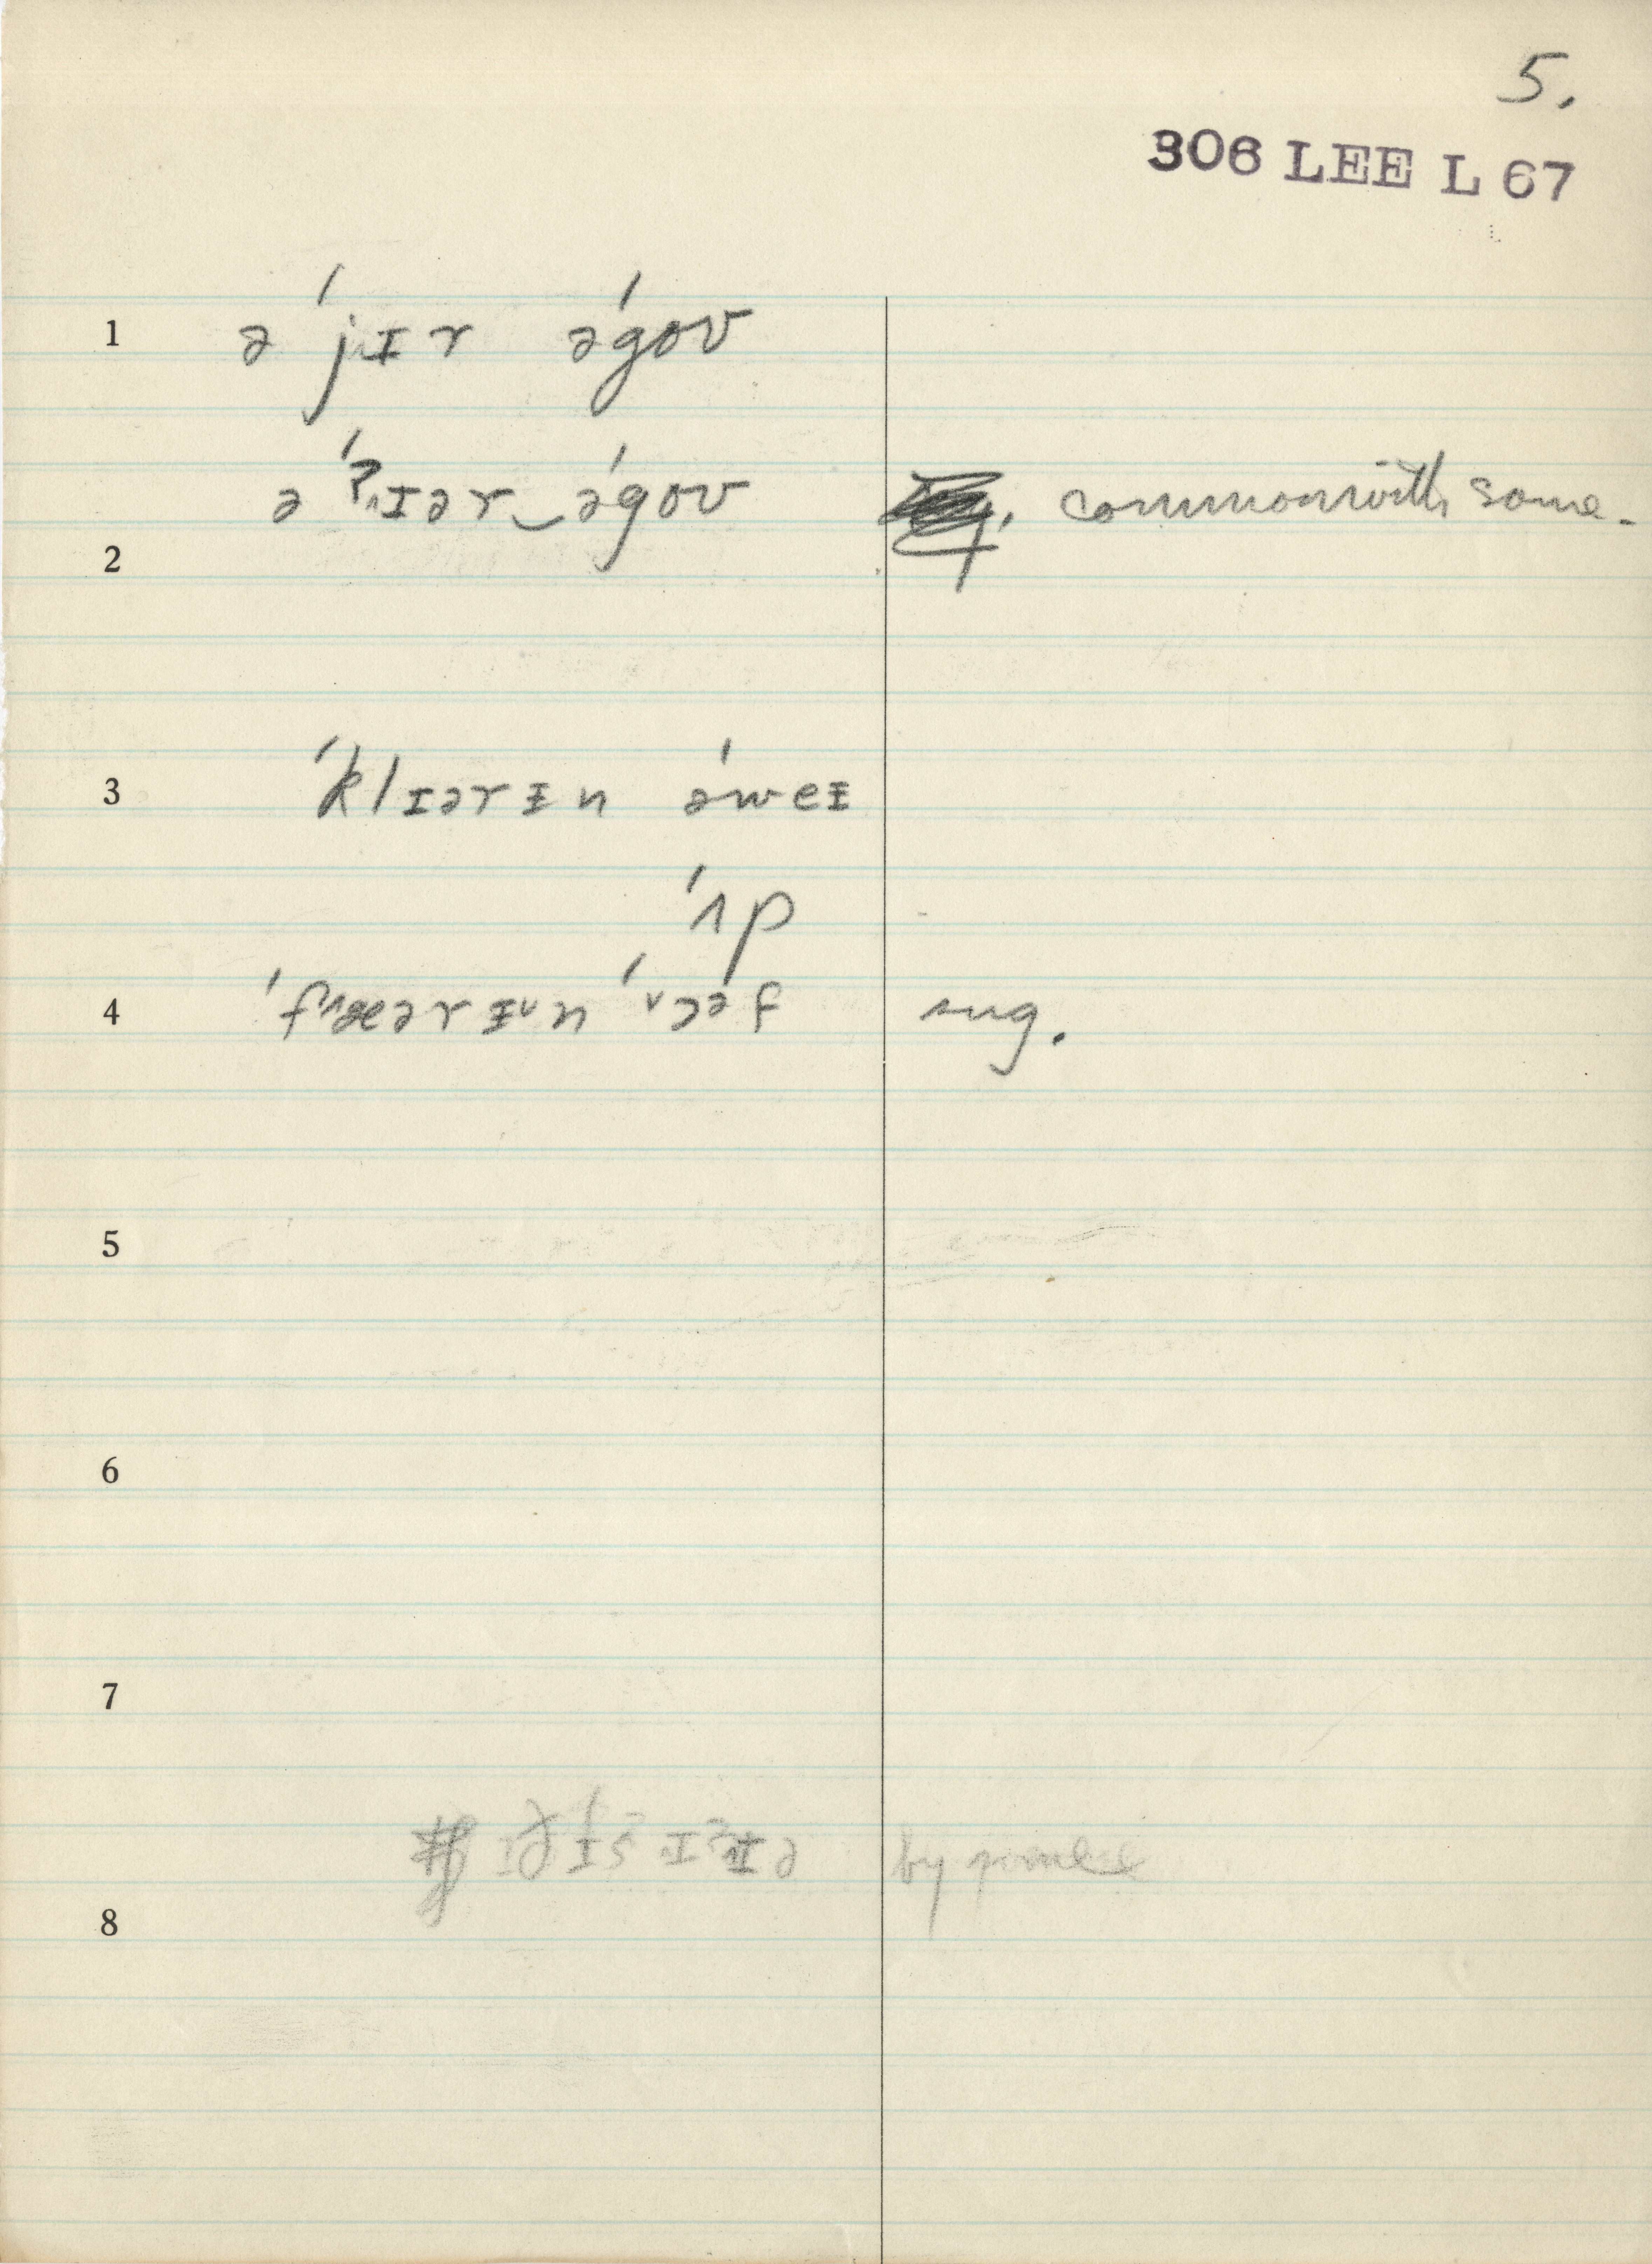 5.
306 LEE L 67
1 ə ˈjɪr əˈgoʊ
ə ˈʔɪər‿əˈgoʊ commonwith some.
2
3 ˈklɪərɪn əˈweɪ
ˈʌp
4 ˈfæərɪn ˈɔəf sug.
5
6
7
by
8